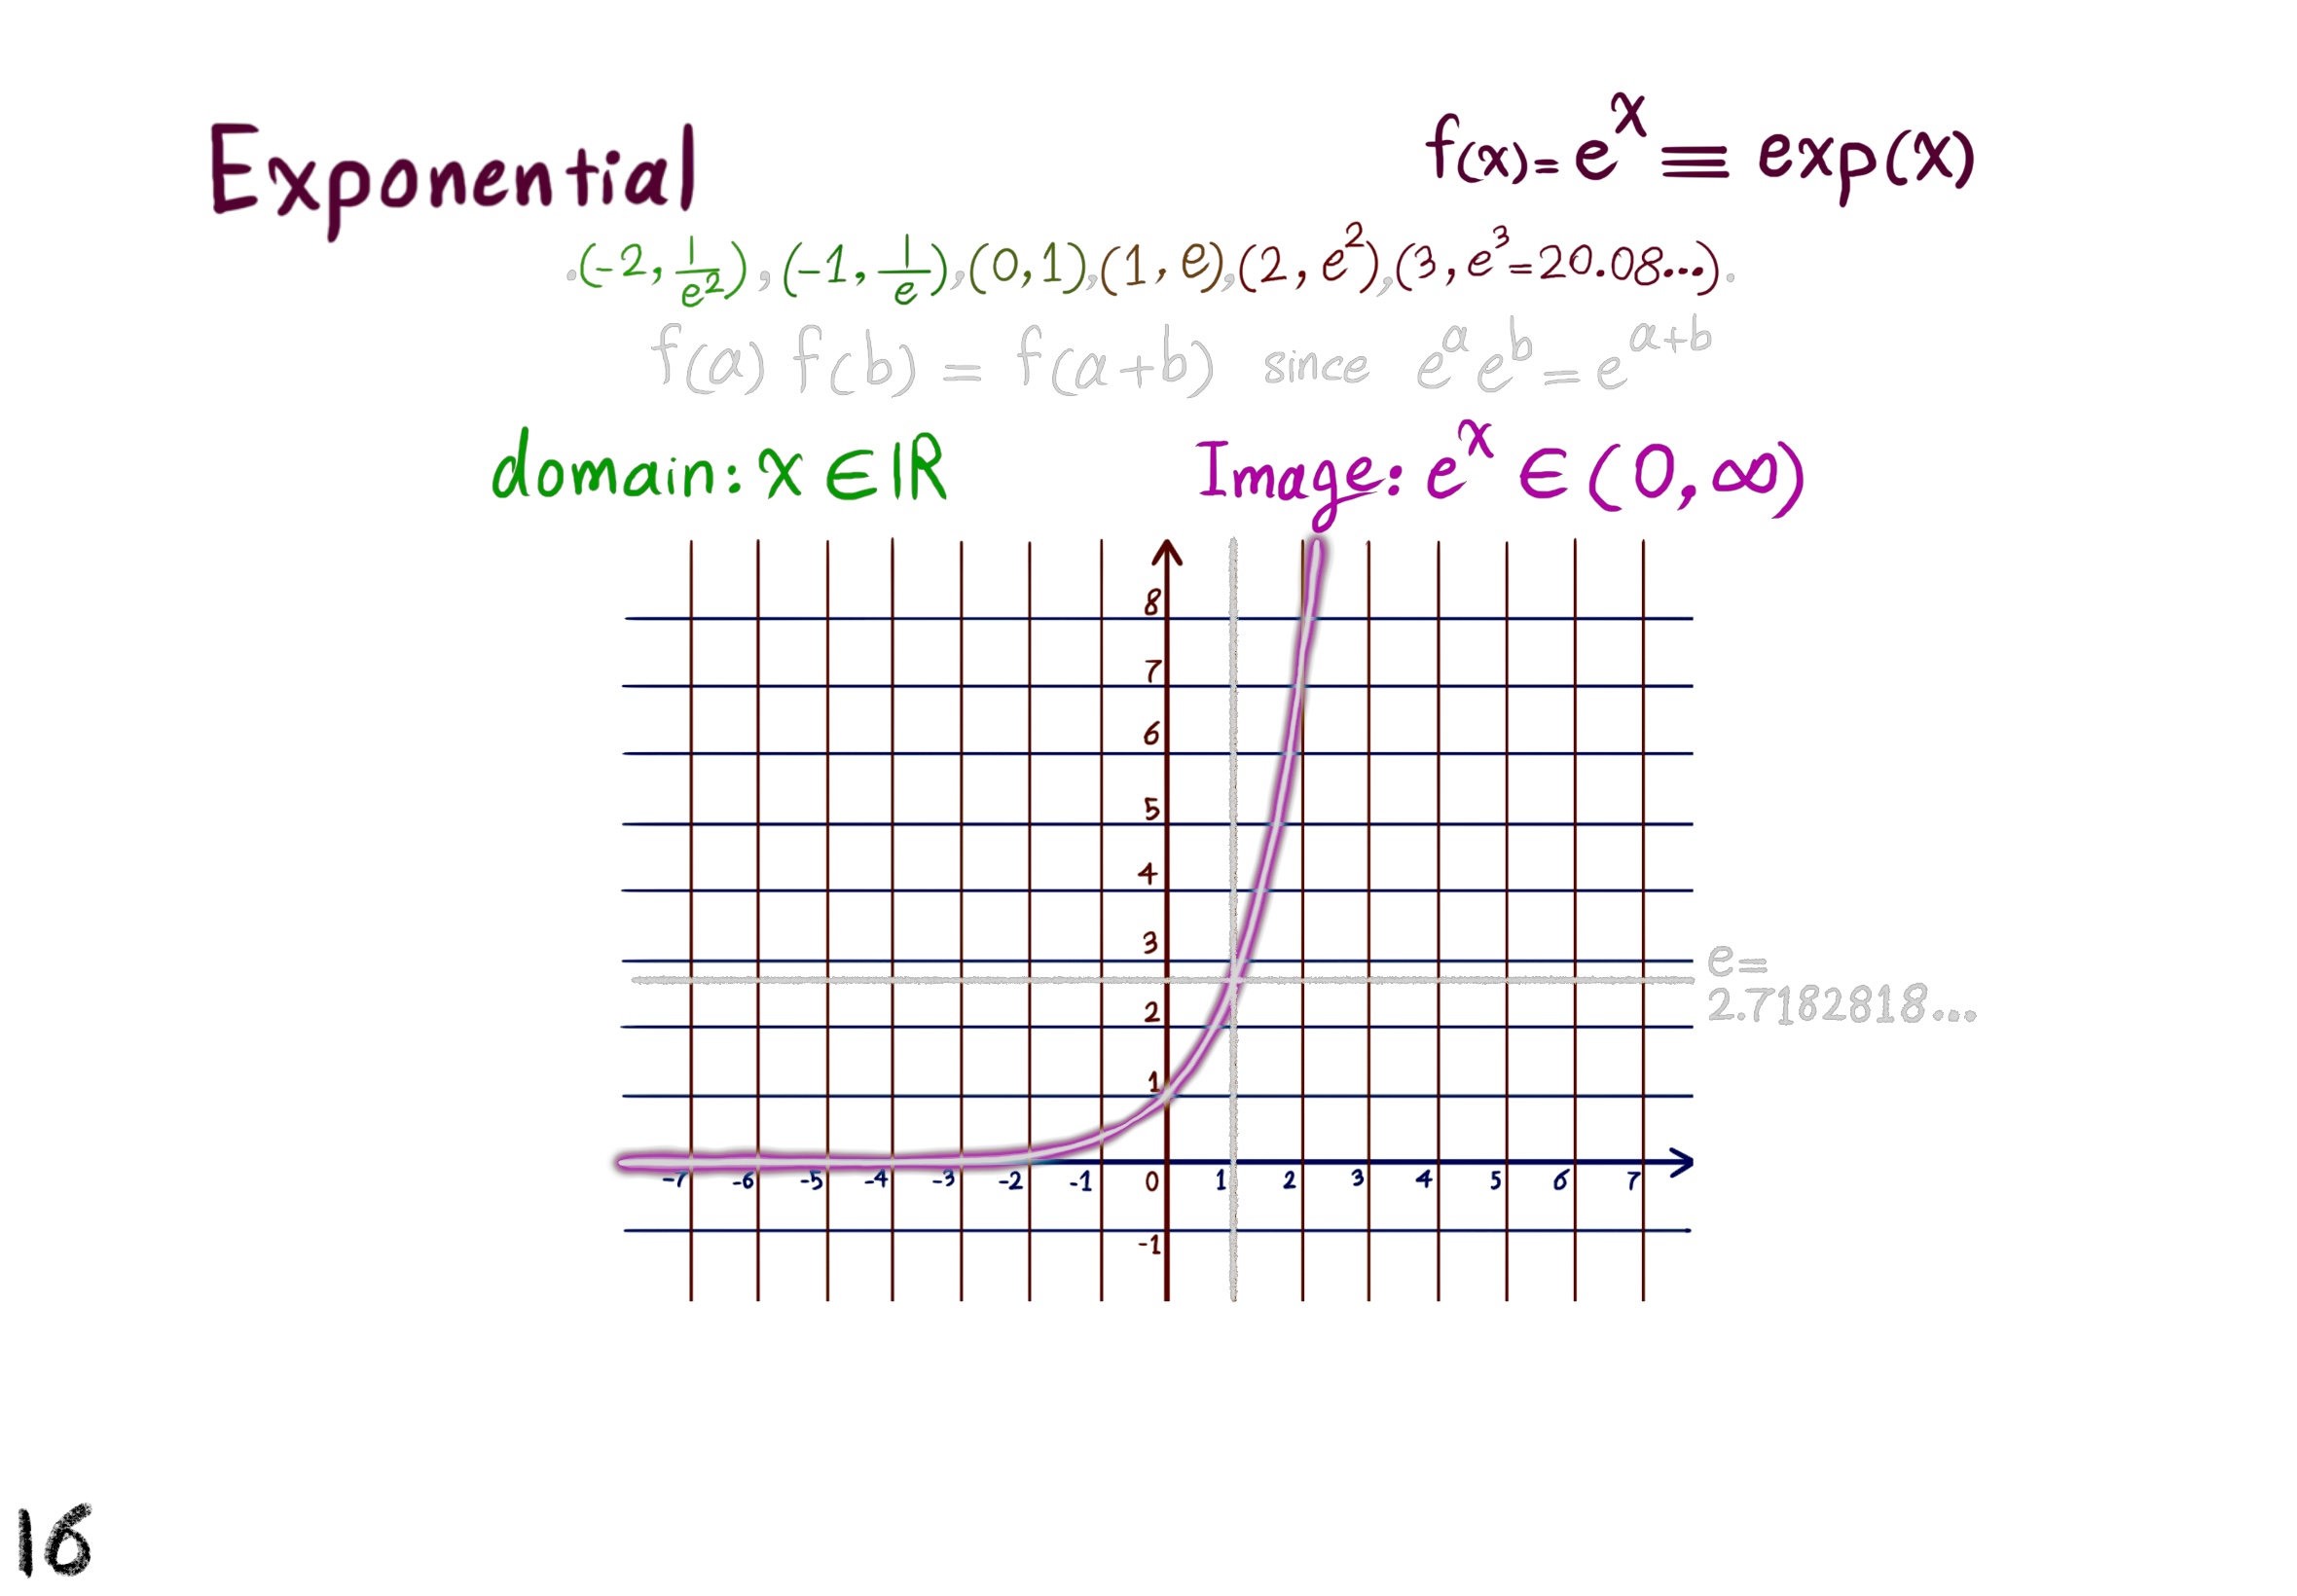 Exponential
f(x)= e^x ≡ exp(x)
.(-2, 1/e²), (-1, 1/e), (0,1), (1, e), (2, e²), (3, e³=20.08...).
f(a) f(b) = f(a+b) since e^a e^b = e^(a+b)
domain: x ∈ ℝ
Image: e^x ∈ (0, ∞)
8
7
6
5
4
3
e=
2.7182818...
2
1
-7 -6 -5 -4 -3 -2 -1 0 1 2 3 4 5 6 7
-1
16